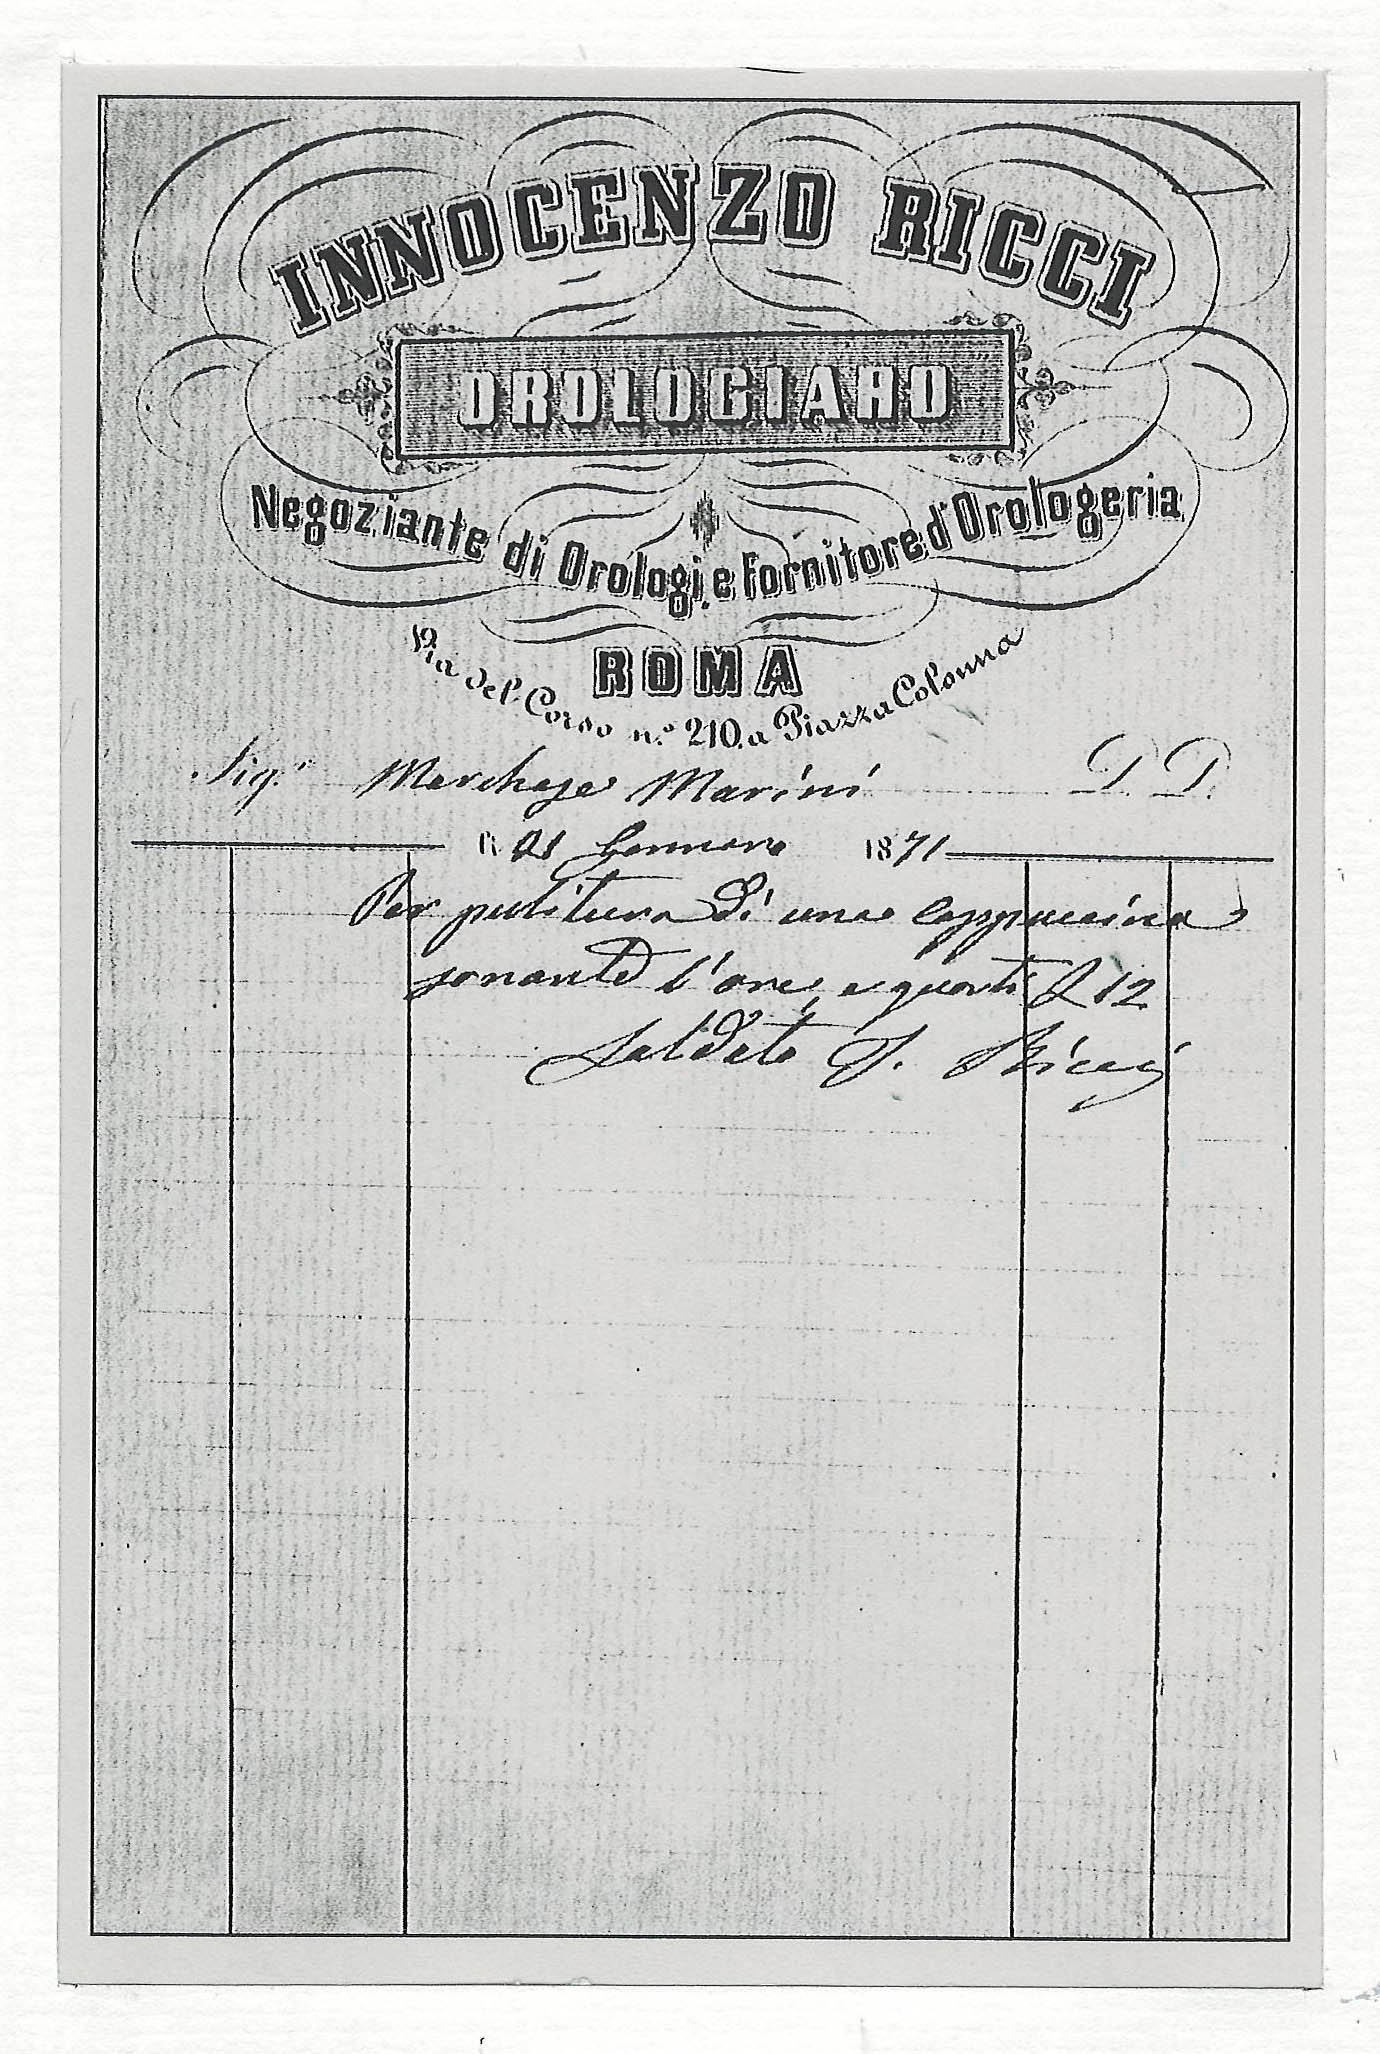 INNOCENZO RICCI
OROLOGIARO
Negoziante di Orologi, e Fornitore d'Orologeria
ROMA
Via del Corso n.º 210. a Piazza Colonna
Sig.r Marchese Marini D. D.
li 21 Gennaro 1871
Per pulitura di una Cappuccina
sonante l'ore, e quarti £ 12
Saldato I. Ricci